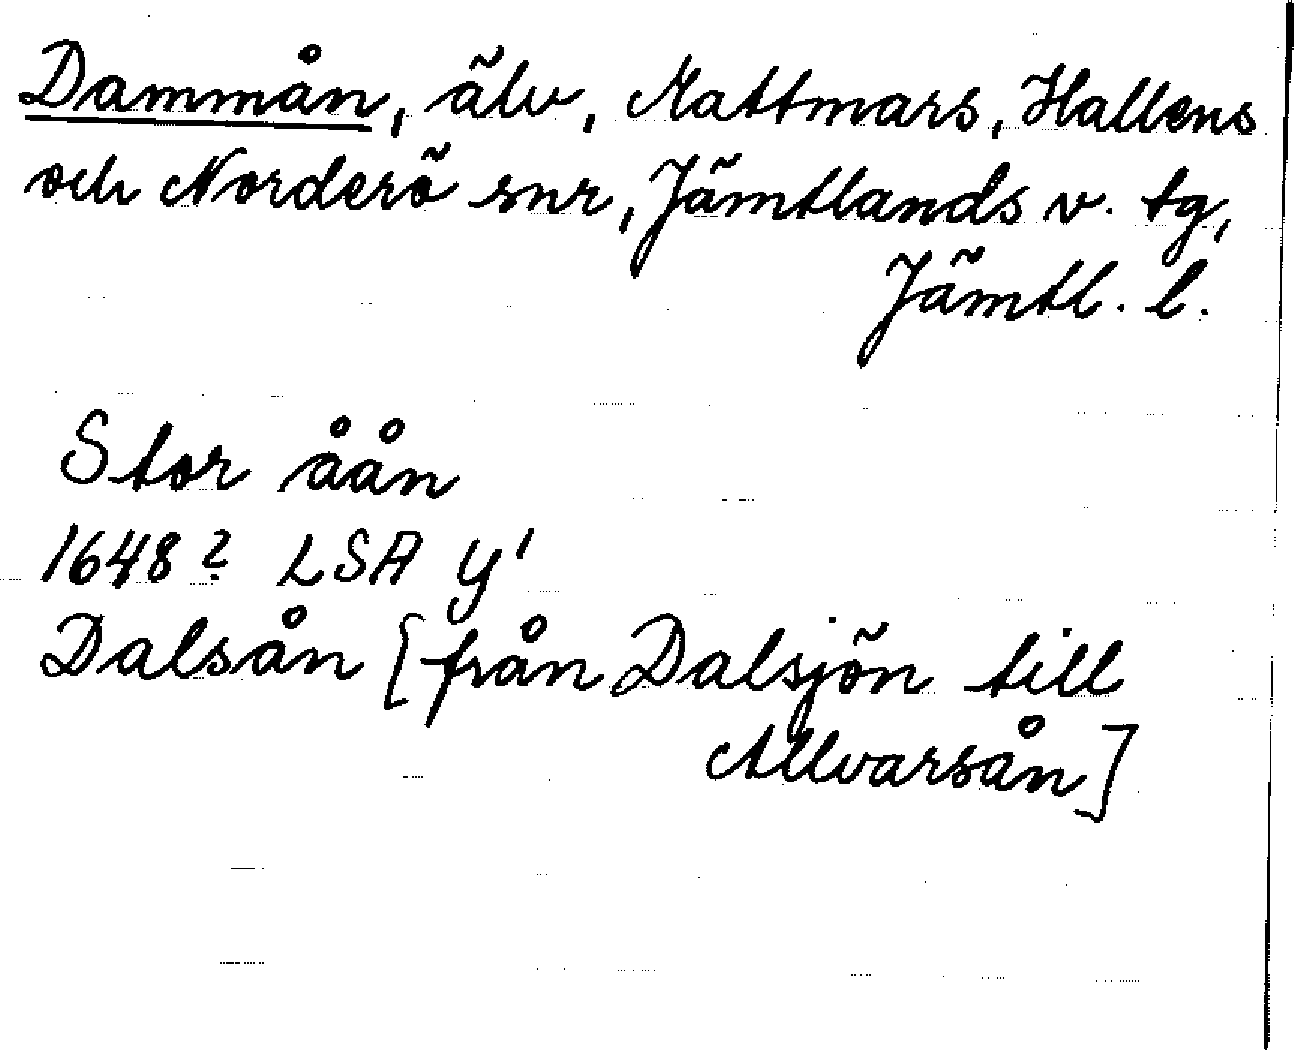 Dammån, älv, Mattmars, Hallens
och Norderö snr, Jämtlands v. tg,
Jämtl. l.
Stor åån
1648? LSA Y¹
Dalsån [från Dalsjön till
Allvarsån]